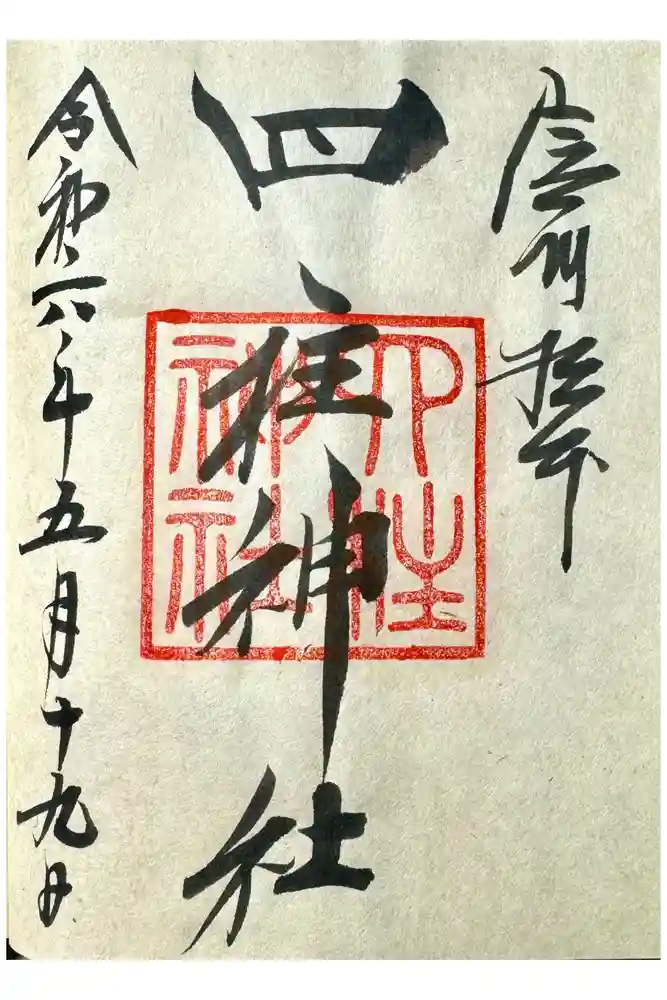 信州松本
四柱神社
四柱神社
令和六年五月十九日